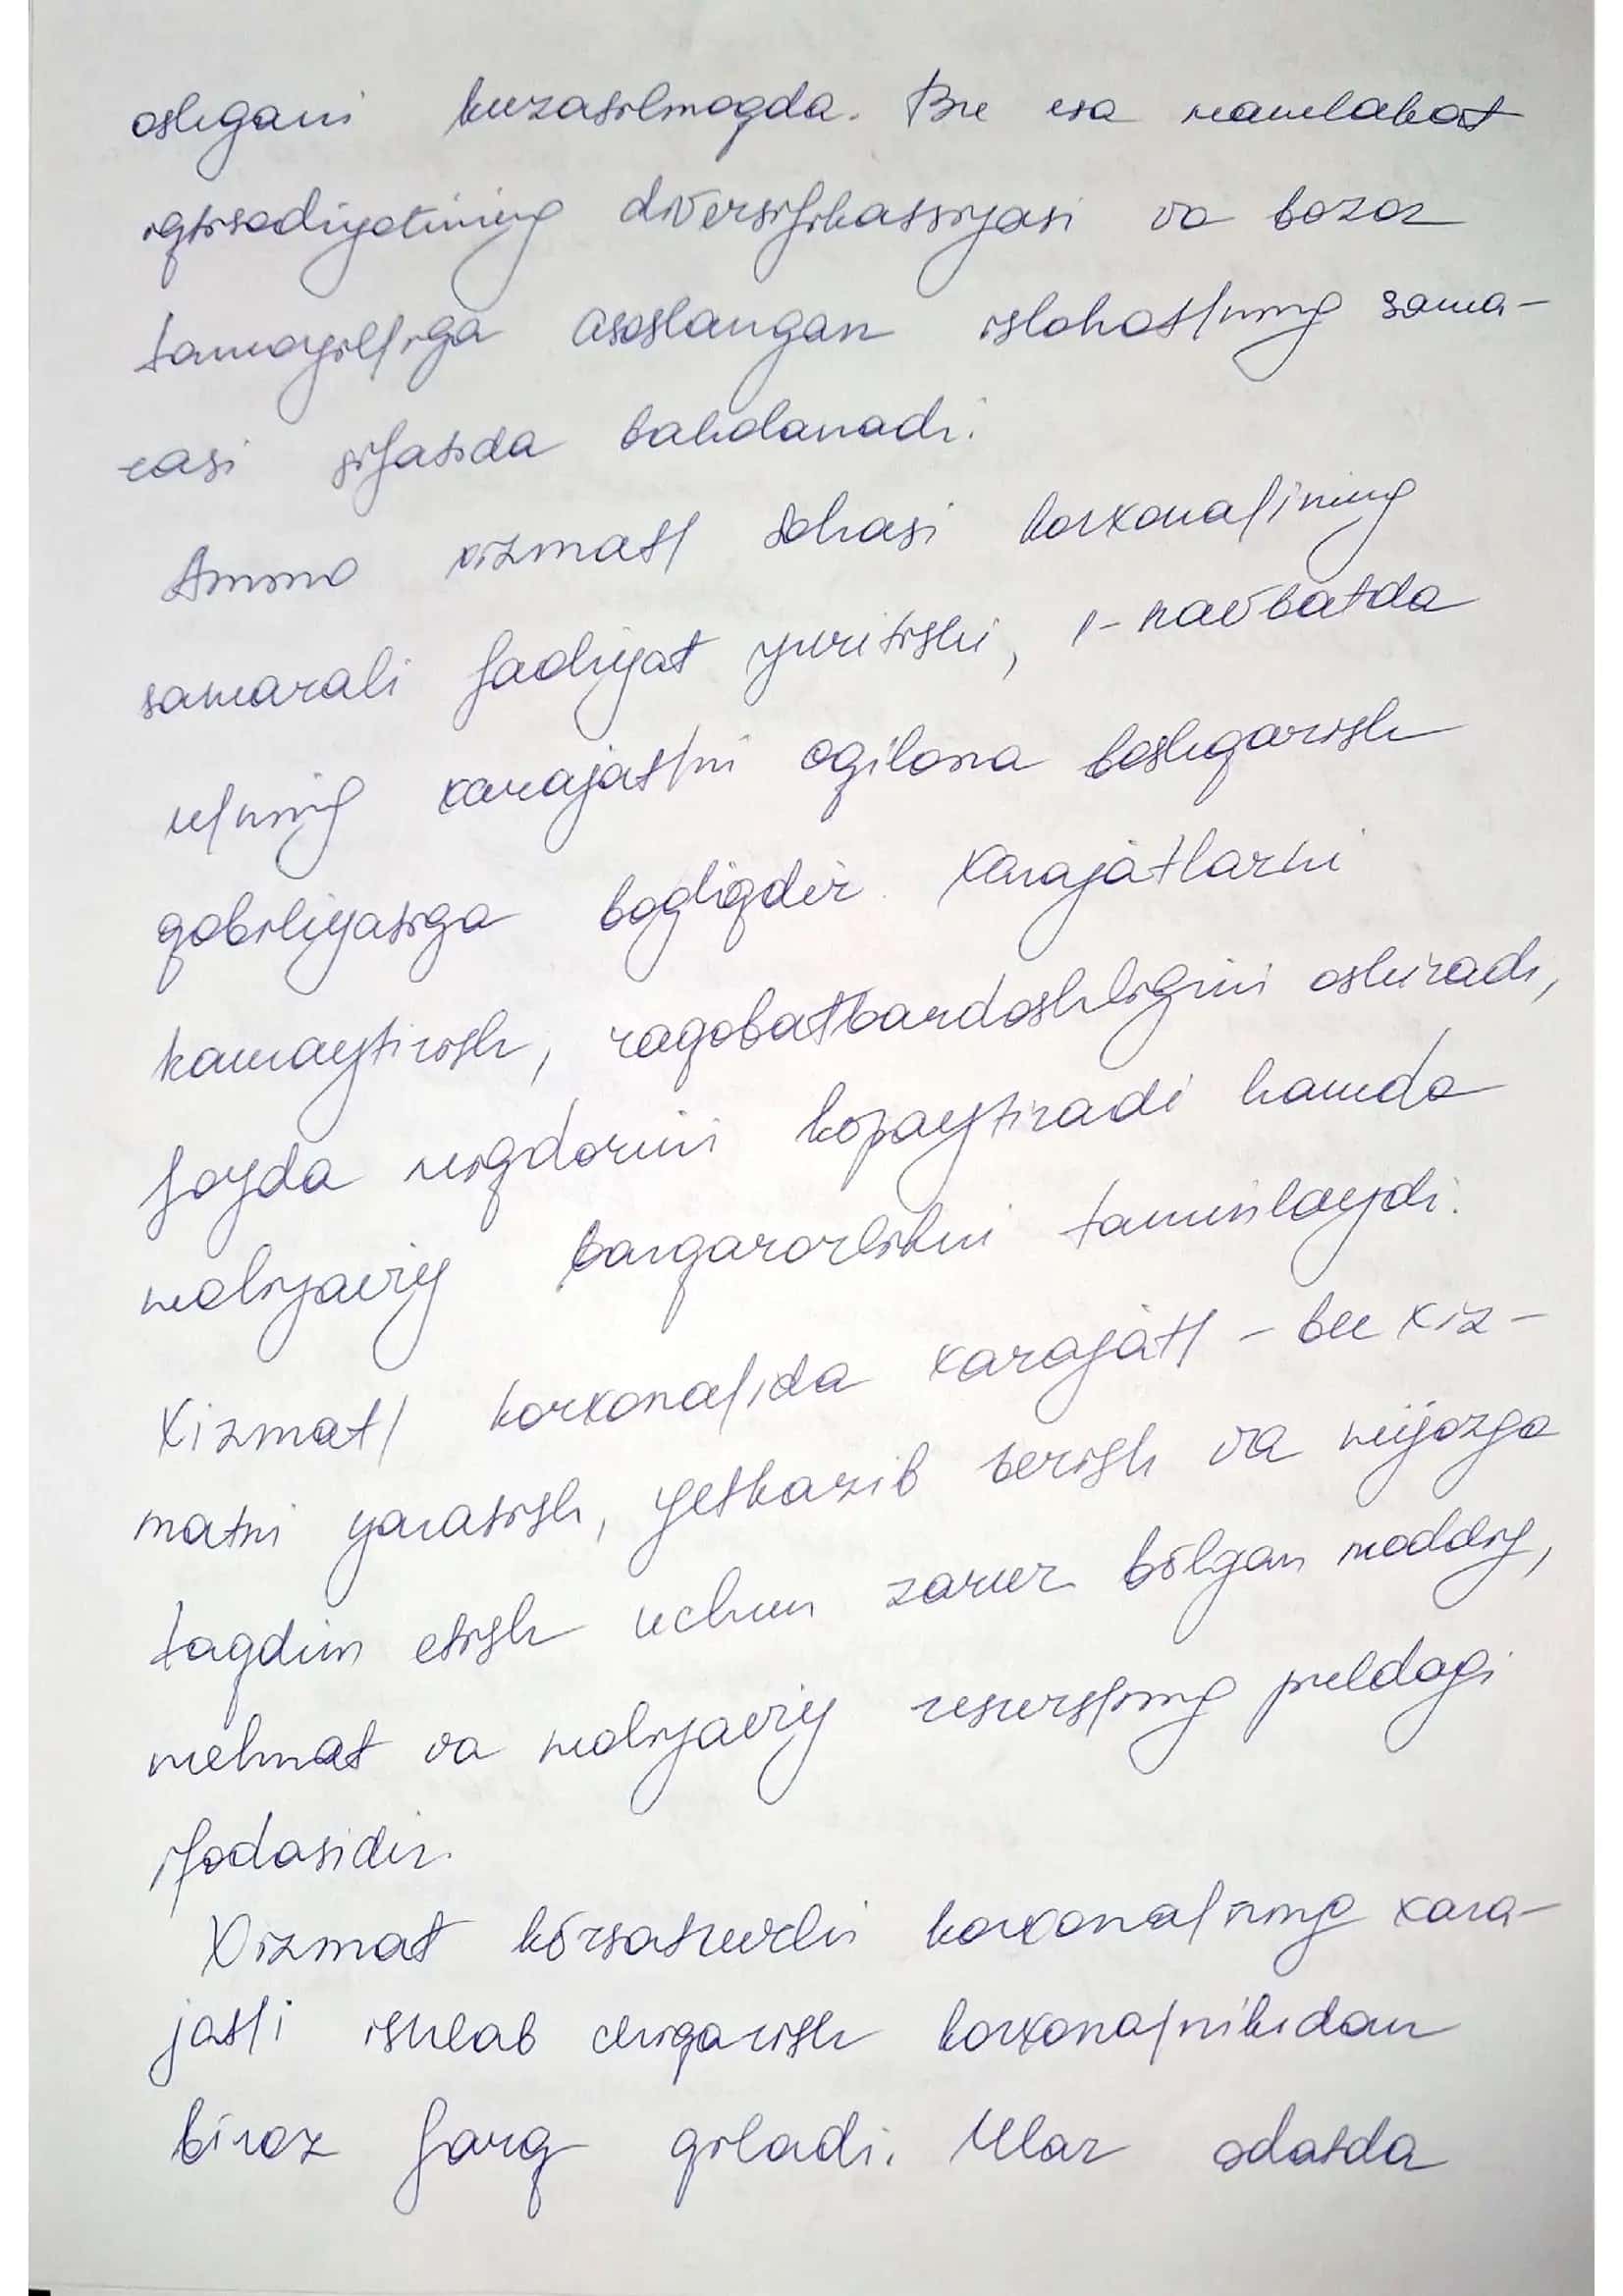 oshgani kuzatilmoqda. Bu esa mamlakat
iqtisodiyotining diversifikatsiyasi va bozor
tamoyil/iga asoslangan islohot/ning sama-
rasi sifatida baholanadi.
Ammo xizmat/ sohasi korxona/ining
samarali faoliyat yuritishi, 1-navbatda
u/ning xarajat/ni oqilona boshqarish
qobiliyatiga bogliqdir. Xarajatlarni
kamaytirish, raqobatbardoshligini oshiradi,
foyda miqdorini kópaytiradi hamda
moliyaviy barqarorlikni taminlaydi.
Xizmat/ korxona/ida xarajat/ - bu xiz-
matni yaratish, yetkazib berish va mijozga
taqdim etish uchun zarur bólgan moddiy,
mehnat va moliyaviy resurs/ning puldagi
ifodasidir.
Xizmat kórsatuvchi korxona/ning xara-
jat/i ishlab chiqarish korxona/nikidan
biroz farq qiladi. Ular odatda